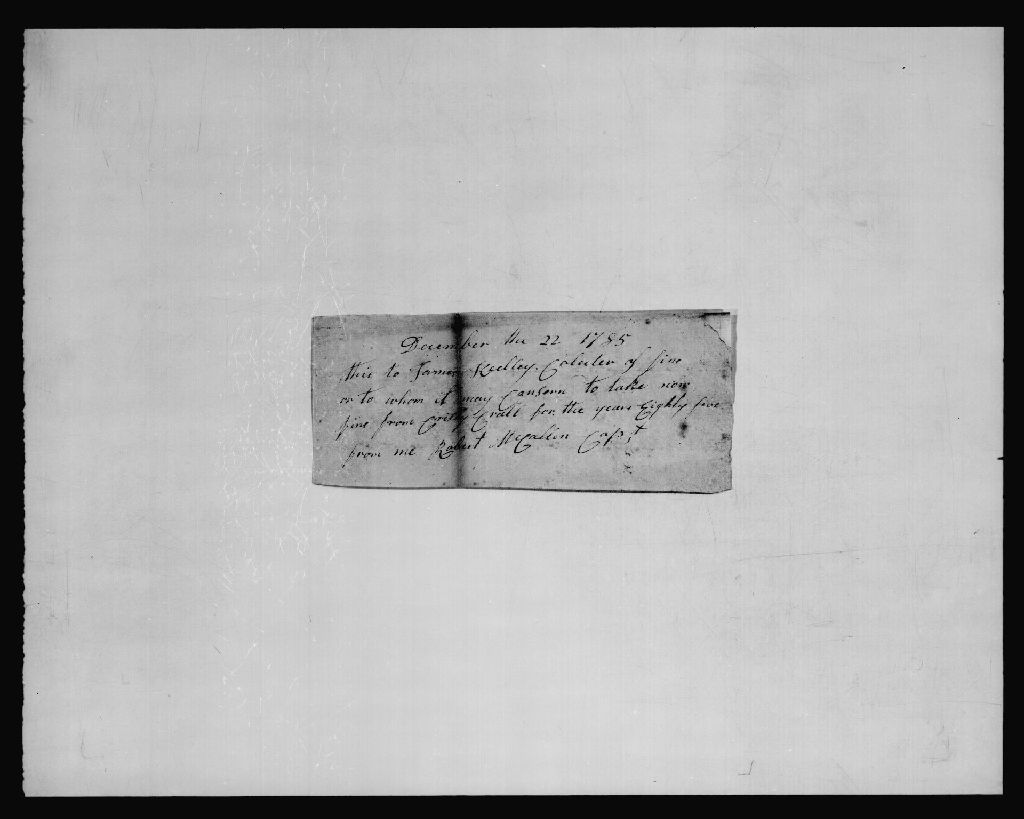 December the 22 1785
this to James Kelley. Coluter of fine
or to whom it may Consern to take now
fins from Crall for the years Eighty five
from me Robert McCallin Capt